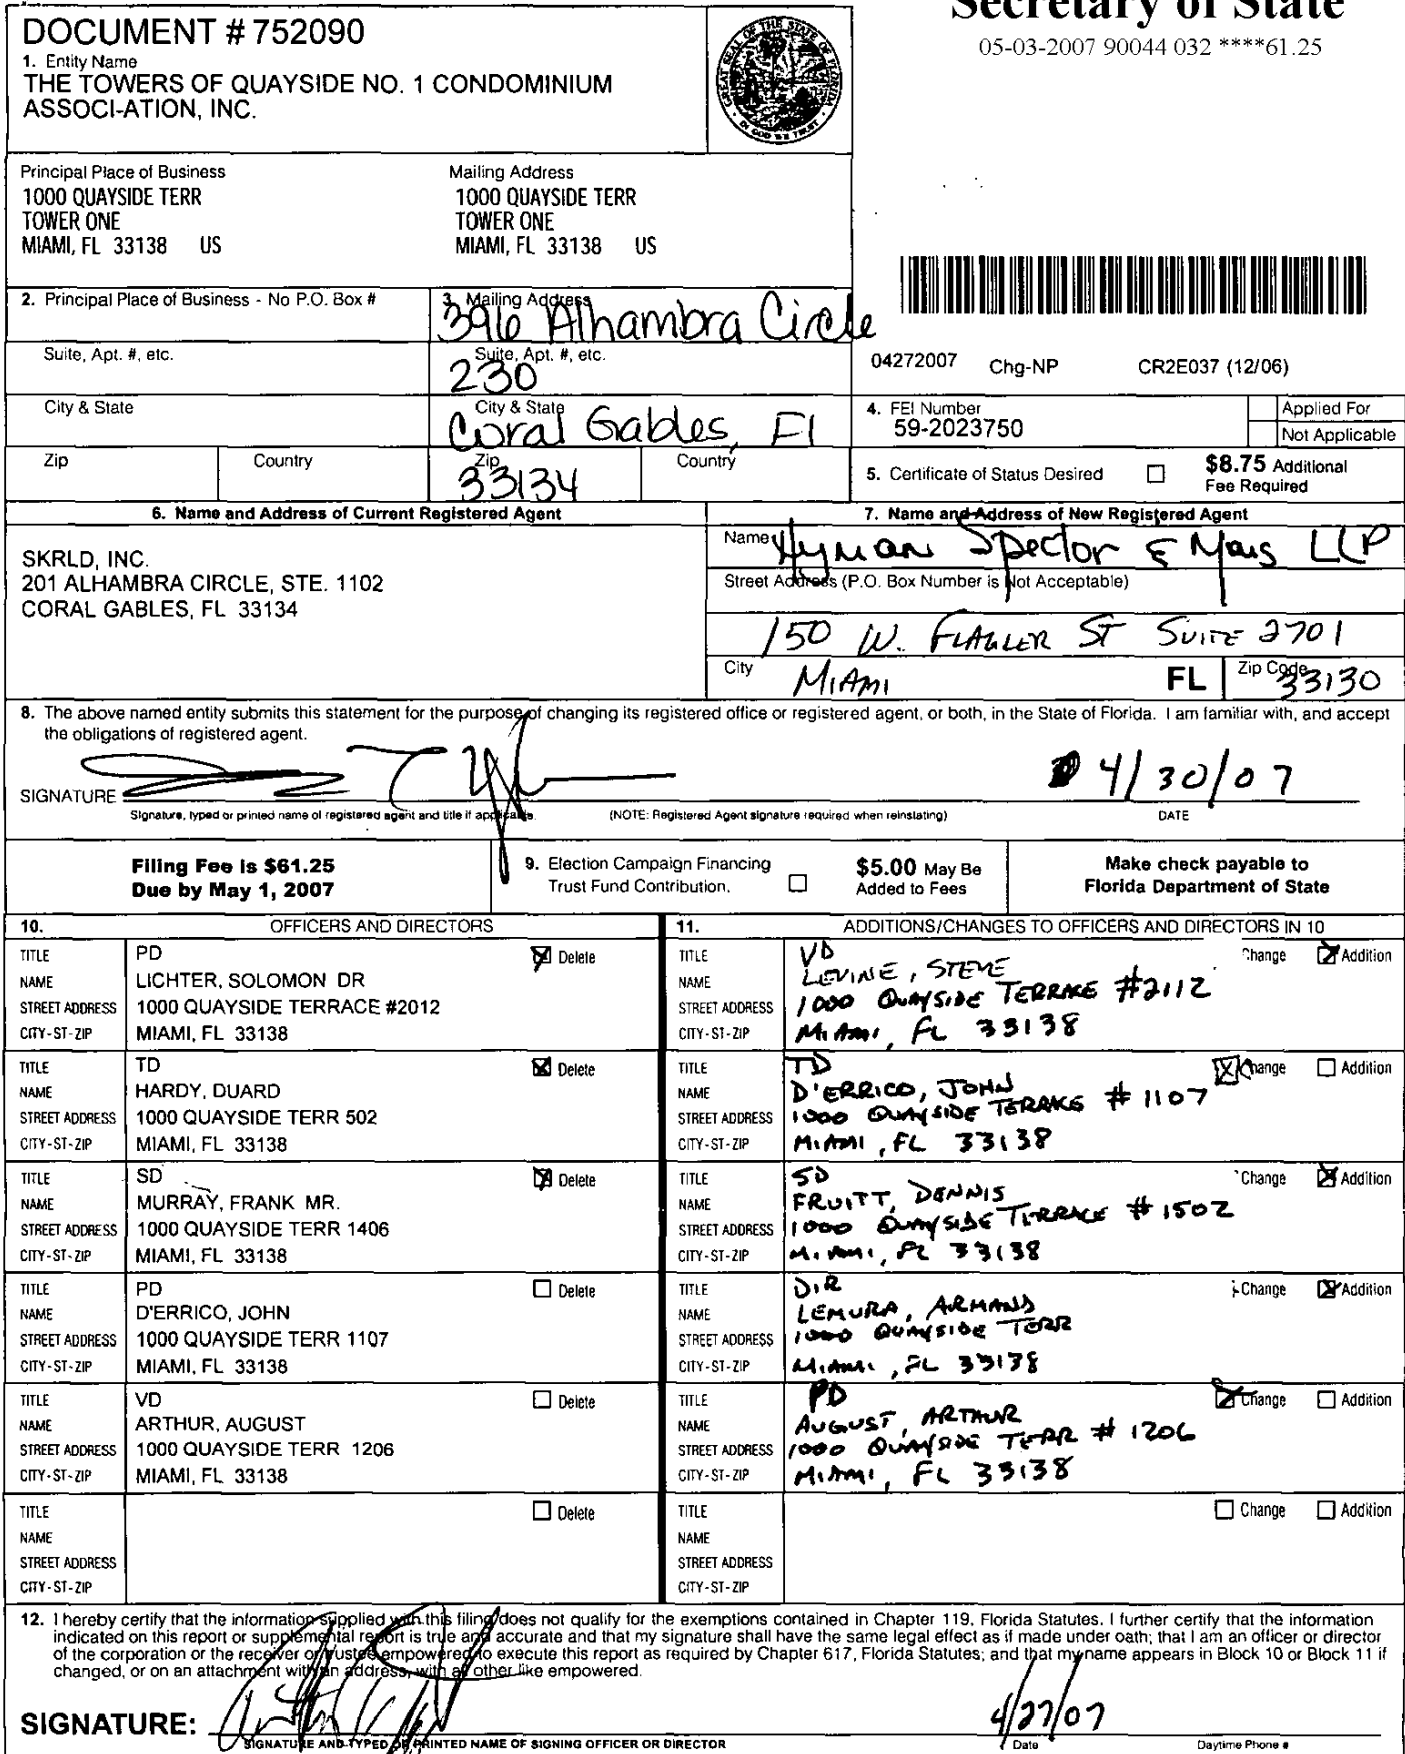 Secretary of State
05-03-2007 90044 032 ****61.25
DOCUMENT # 752090
1. Entity Name
THE TOWERS OF QUAYSIDE NO. 1 CONDOMINIUM
ASSOCI-ATION, INC.
GREAT SEAL OF THE STATE OF FLORIDA
IN GOD WE TRUST
Principal Place of Business
1000 QUAYSIDE TERR
TOWER ONE
MIAMI, FL 33138 US
Mailing Address
1000 QUAYSIDE TERR
TOWER ONE
MIAMI, FL 33138 US
2. Principal Place of Business - No P.O. Box #
3. Mailing Address
396 Alhambra Circle
Suite, Apt. #, etc.
Suite, Apt. #, etc.
230
City & State
City & State
Coral Gables, Fl
Zip
Country
Zip
33134
Country
04272007 Chg-NP CR2E037 (12/06)
4. FEI Number
59-2023750
Applied For
Not Applicable
5. Certificate of Status Desired
$8.75 Additional
Fee Required
6. Name and Address of Current Registered Agent
SKRLD, INC.
201 ALHAMBRA CIRCLE, STE. 1102
CORAL GABLES, FL 33134
7. Name and Address of New Registered Agent
Name Hyman Spector & Mars LLP
Street Address (P.O. Box Number is Not Acceptable)
150 W. FLAGLER ST SUITE 2701
City MIAMI FL Zip Code 33130
8. The above named entity submits this statement for the purpose of changing its registered office or registered agent, or both, in the State of Florida. I am familiar with, and accept
the obligations of registered agent.
SIGNATURE
4/30/07
Signature, typed or printed name of registered agent and title if applicable. (NOTE: Registered Agent signature required when reinstating) DATE
Filing Fee is $61.25
Due by May 1, 2007
9. Election Campaign Financing
Trust Fund Contribution.
$5.00 May Be
Added to Fees
Make check payable to
Florida Department of State
10. OFFICERS AND DIRECTORS
TITLE PD Delete
NAME LICHTER, SOLOMON DR
STREET ADDRESS 1000 QUAYSIDE TERRACE #2012
CITY-ST-ZIP MIAMI, FL 33138
TITLE TD Delete
NAME HARDY, DUARD
STREET ADDRESS 1000 QUAYSIDE TERR 502
CITY-ST-ZIP MIAMI, FL 33138
TITLE SD Delete
NAME MURRAY, FRANK MR.
STREET ADDRESS 1000 QUAYSIDE TERR 1406
CITY-ST-ZIP MIAMI, FL 33138
TITLE PD Delete
NAME D'ERRICO, JOHN
STREET ADDRESS 1000 QUAYSIDE TERR 1107
CITY-ST-ZIP MIAMI, FL 33138
TITLE VD Delete
NAME ARTHUR, AUGUST
STREET ADDRESS 1000 QUAYSIDE TERR 1206
CITY-ST-ZIP MIAMI, FL 33138
TITLE Delete
NAME
STREET ADDRESS
CITY-ST-ZIP
11. ADDITIONS/CHANGES TO OFFICERS AND DIRECTORS IN 10
TITLE VD Change Addition
NAME LEVINE, STEVE
STREET ADDRESS 1000 QUAYSIDE TERRAKE #2112
CITY-ST-ZIP MIAMI, FL 33138
TITLE TD Change Addition
NAME D'ERRICO, JOHN
STREET ADDRESS 1000 QUAYSIDE TERAKE # 1107
CITY-ST-ZIP MIAMI, FL 33138
TITLE SD Change Addition
NAME FRUITT, DENNIS
STREET ADDRESS 1000 QUAYSIDE TERRACE # 1502
CITY-ST-ZIP MIAMI, FL 33138
TITLE DIR Change Addition
NAME LEMURA, ARMAND
STREET ADDRESS 1000 QUAYSIDE TERR
CITY-ST-ZIP MIAMI, FL 33138
TITLE PD Change Addition
NAME AUGUST, ARTHUR
STREET ADDRESS 1000 QUAYSIDE TERR # 1206
CITY-ST-ZIP MIAMI, FL 33138
TITLE Change Addition
NAME
STREET ADDRESS
CITY-ST-ZIP
12. I hereby certify that the information supplied with this filing does not qualify for the exemptions contained in Chapter 119, Florida Statutes. I further certify that the information
indicated on this report or supplemental report is true and accurate and that my signature shall have the same legal effect as if made under oath; that I am an officer or director
of the corporation or the receiver or trustee empowered to execute this report as required by Chapter 617, Florida Statutes; and that my name appears in Block 10 or Block 11 if
changed, or on an attachment with an address, with all other like empowered.
SIGNATURE:
4/27/07
SIGNATURE AND TYPED OR PRINTED NAME OF SIGNING OFFICER OR DIRECTOR Date Daytime Phone #